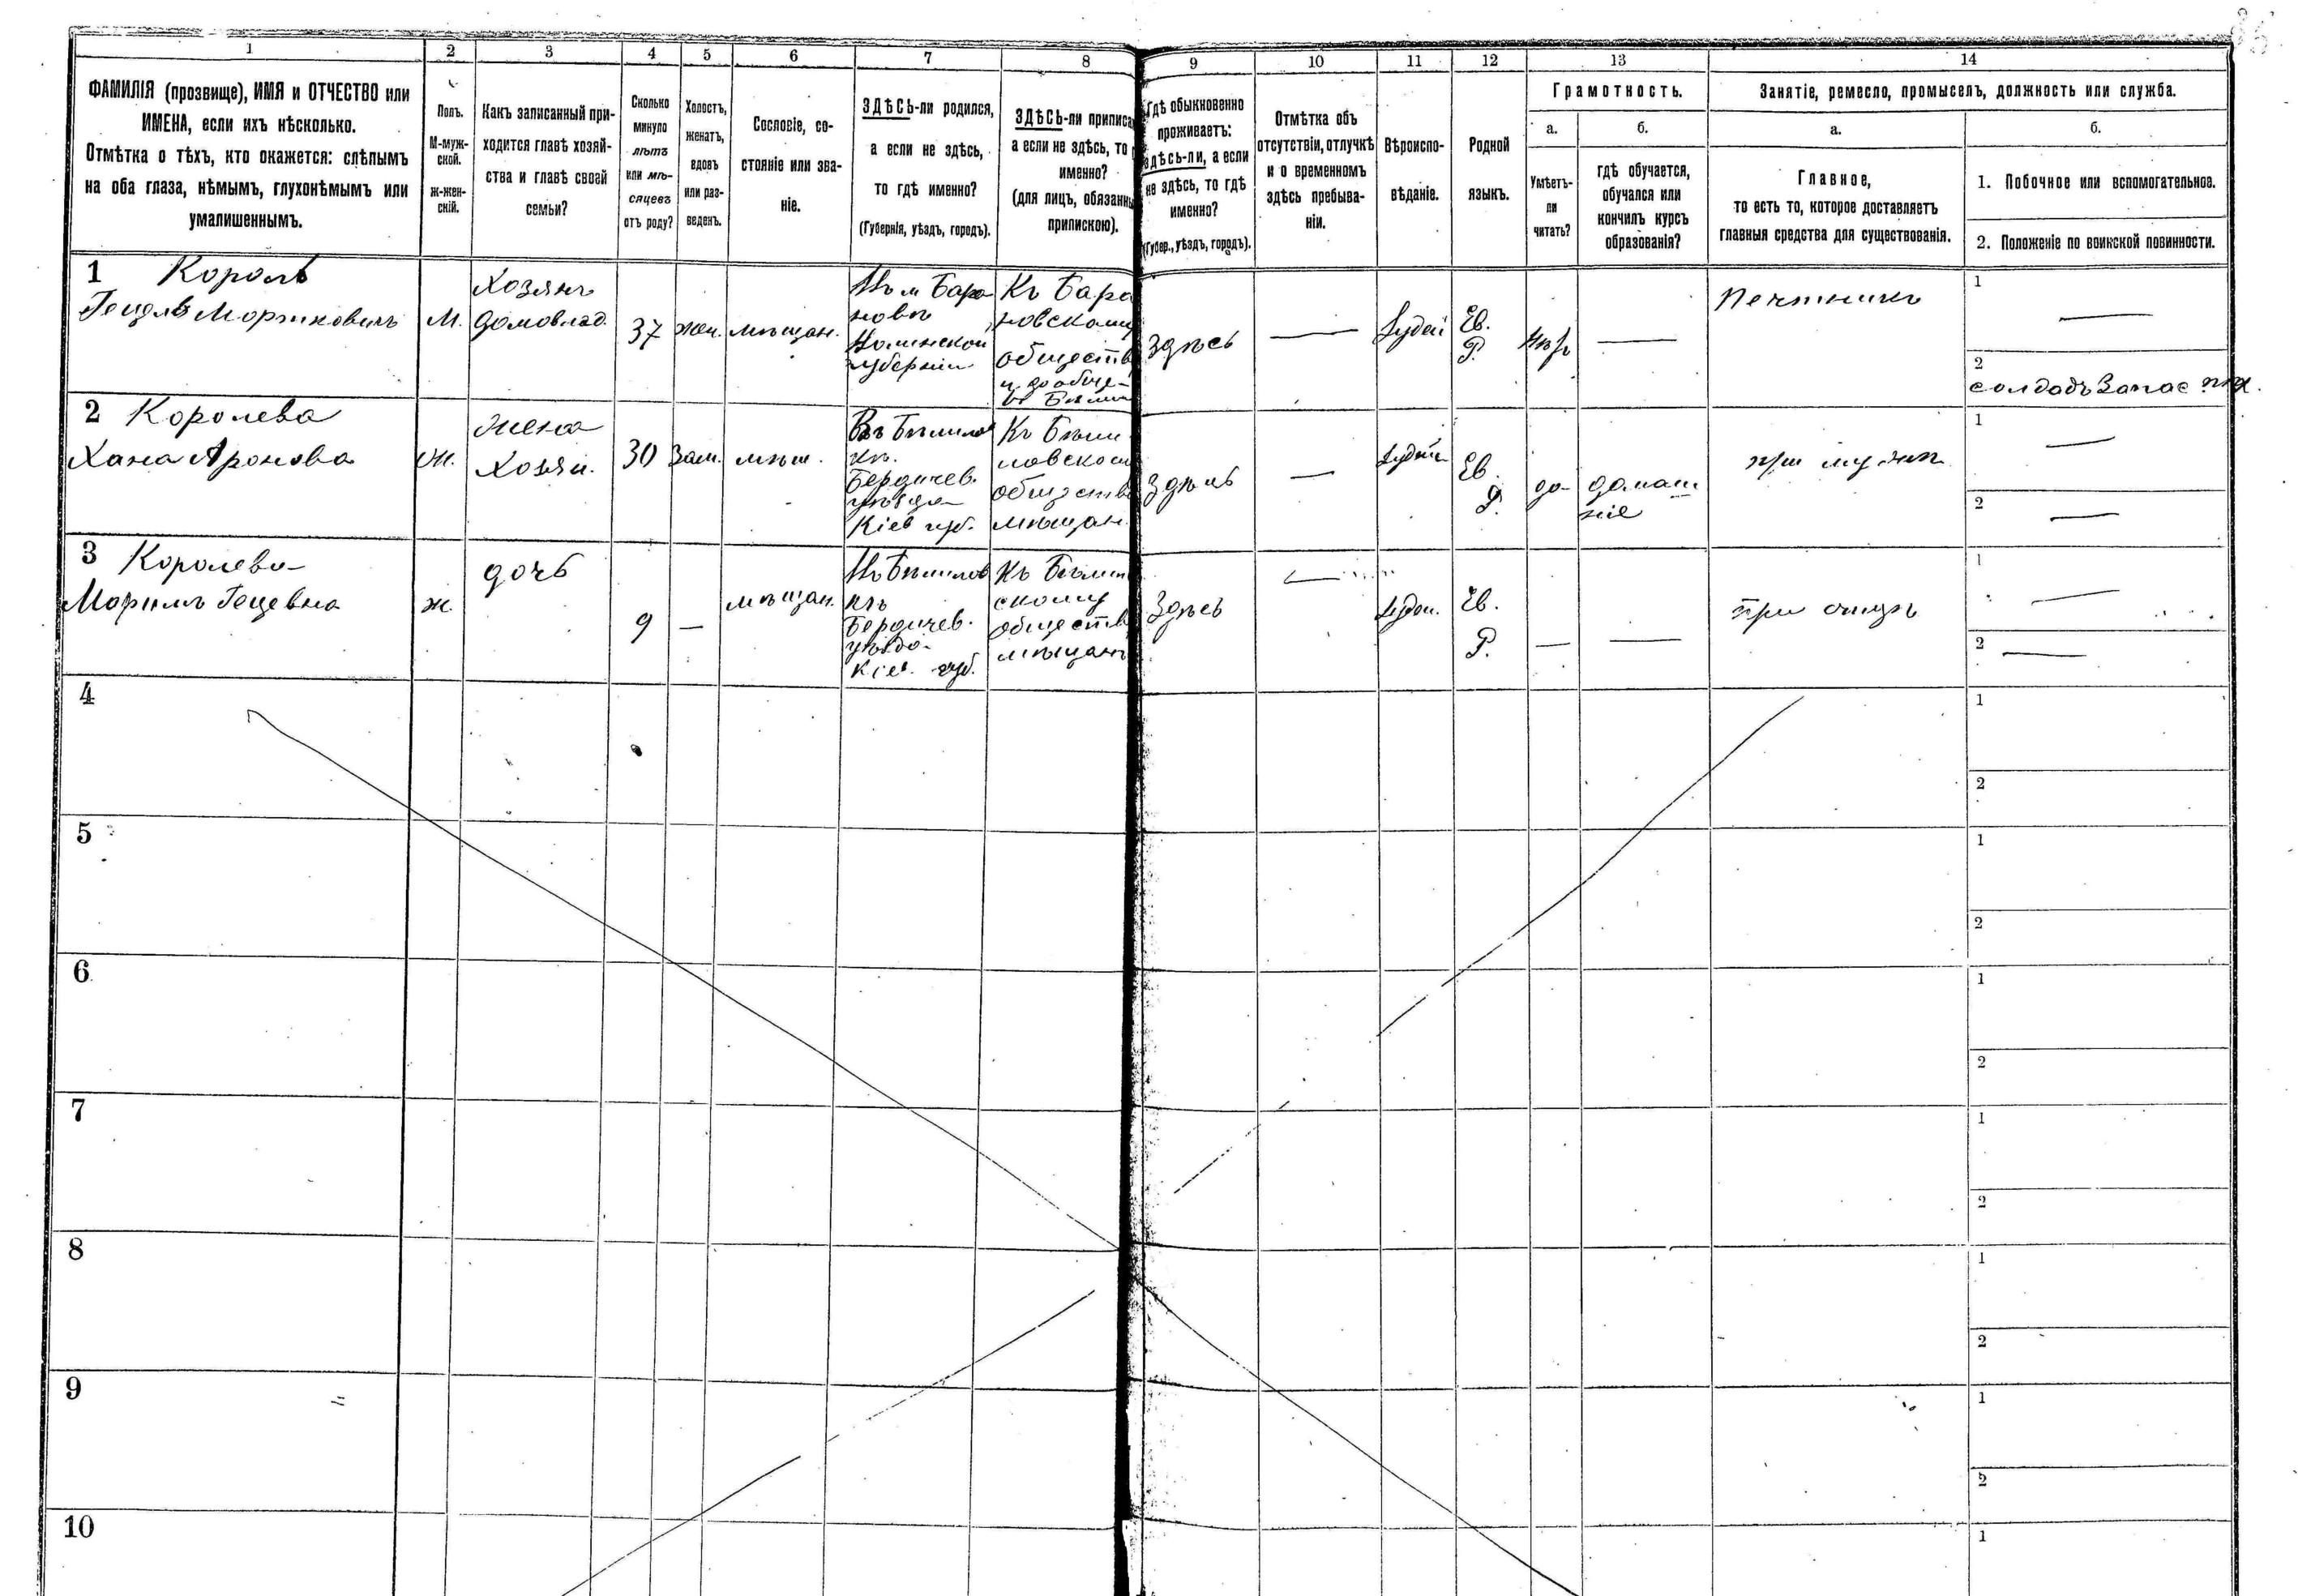 1
2
3
4
5
6
7
8
9
10
11
12
13
14
ФАМИЛІЯ (прозвище), ИМЯ и ОТЧЕСТВО или
ИМЕНА, если ихъ нѣсколько.
Отмѣтка о тѣхъ, кто окажется: слѣпымъ
на оба глаза, нѣмымъ, глухонѣмымъ или
умалишеннымъ.
Полъ.
М-муж-
ской.
ж-жен-
скій.
Какъ записанный при-
ходится главѣ хозяй-
ства и главѣ своей
семьи?
Сколько
минуло
лѣтъ
или мѣ-
сяцевъ
отъ роду?
Холостъ,
женатъ,
вдовъ
или раз-
веденъ.
Сословіе, со-
стояніе или зва-
ніе.
ЗДѢСЬ-ли родился,
а если не здѣсь,
то гдѣ именно?
(Губернія, уѣздъ, городъ).
ЗДѢСЬ-ли приписа
а если не здѣсь, то
именно?
(для лицъ, обязанны
припискою).
Гдѣ обыкновенно
проживаетъ:
здѣсь-ли, а если
не здѣсь, то гдѣ
именно?
(Губер., уѣздъ, городъ).
Отмѣтка объ
отсутствіи, отлучкѣ
и о временномъ
здѣсь пребыва-
ніи.
Вѣроиспо-
вѣданіе.
Родной
языкъ.
Грамотность.
а.
Умѣетъ-
ли
читать?
б.
гдѣ обучается,
обучался или
кончилъ курсъ
образованія?
Занятіе, ремесло, промыселъ, должность или служба.
а.
Главное,
то есть то, которое доставляетъ
главныя средства для существованія.
б.
1. Побочное или вспомогательное.
2. Положеніе по воинской повинности.
1 Король
М.
Хозяинъ
домовлад.
37
жен.
мѣщан.
Баро
новъ
губерніи
Къ Бара
новскому
обществ
здѣсь
Іудей
Ев.
Р.
Печтникъ
1
2
солдадъ Запас
2 Королева
Хана Аронова
ж.
жена
Хозяи.
30
Зам.
мѣщ.
Бердичев.
уѣзда
Кіев губ.
Къ
обществ
мѣщан.
здѣсь
Іудей
Ев.
Р.
да
домаш
ніе
при мужѣ
1
2
3 Королева
ж.
дочь
9
мѣщан.
Бердичев.
уѣзда
Кіев. губ.
Къ
скому
обществ
мѣщанъ
здѣсь
Іудей.
Ев.
Р.
при отцѣ
1
2
4
1
2
5
1
2
6
1
2
7
1
2
8
1
2
9
1
2
10
1